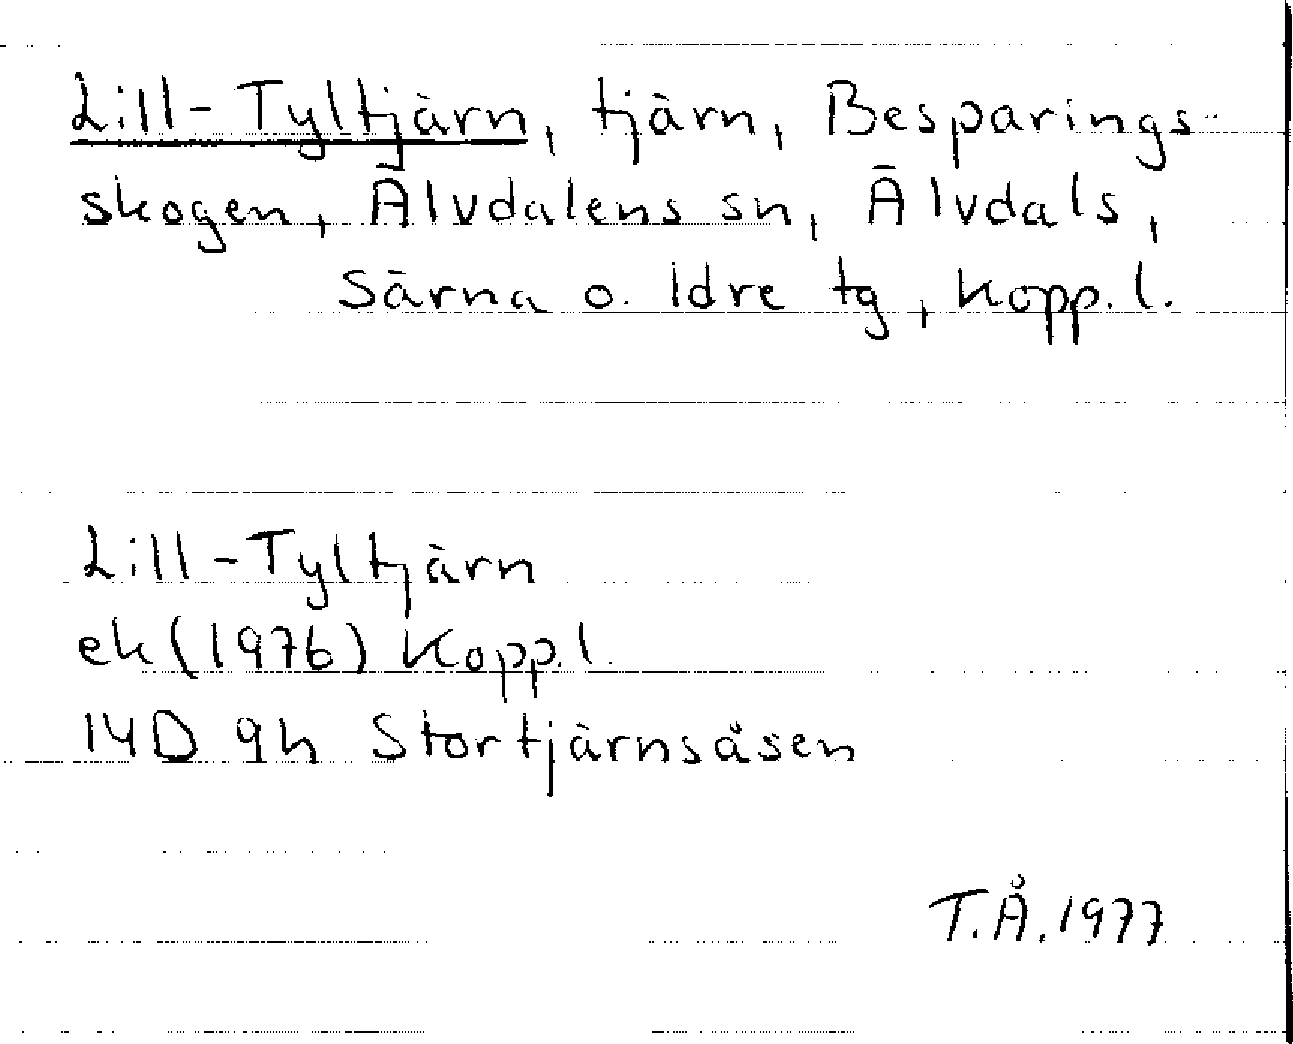 Lill-Tyltjärn, tjärn, Besparings-
skogen, Älvdalens sn, Älvdals,
Särna o. Idre tg, Kopp.l.
Lill-Tyltjärn
ek (1976) Kopp.l.
14D 9h Stortjärnsåsen
T.Å. 1977